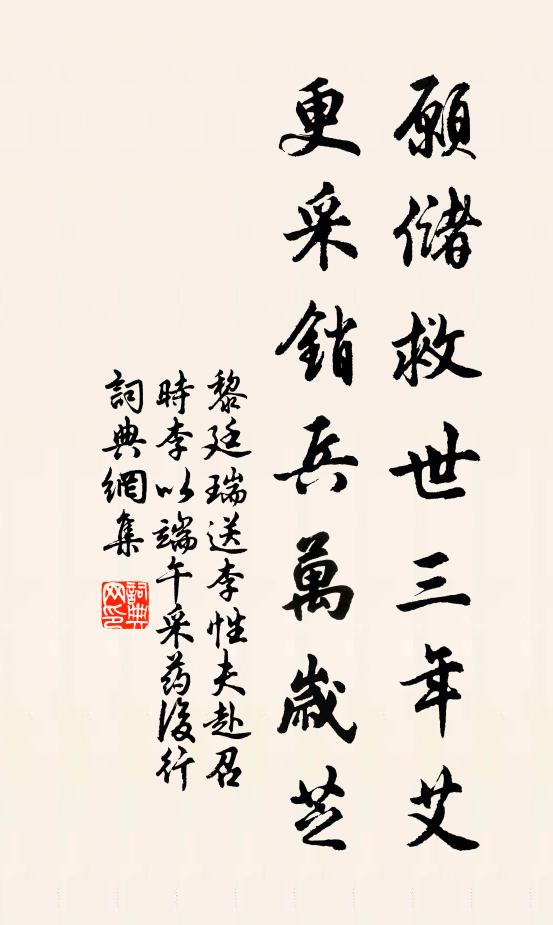 願儲救世三年艾
更采銷兵萬歲芝
黎廷瑞送李性夫赴召
時李以端午采药後行
詞典網集
詞典网印